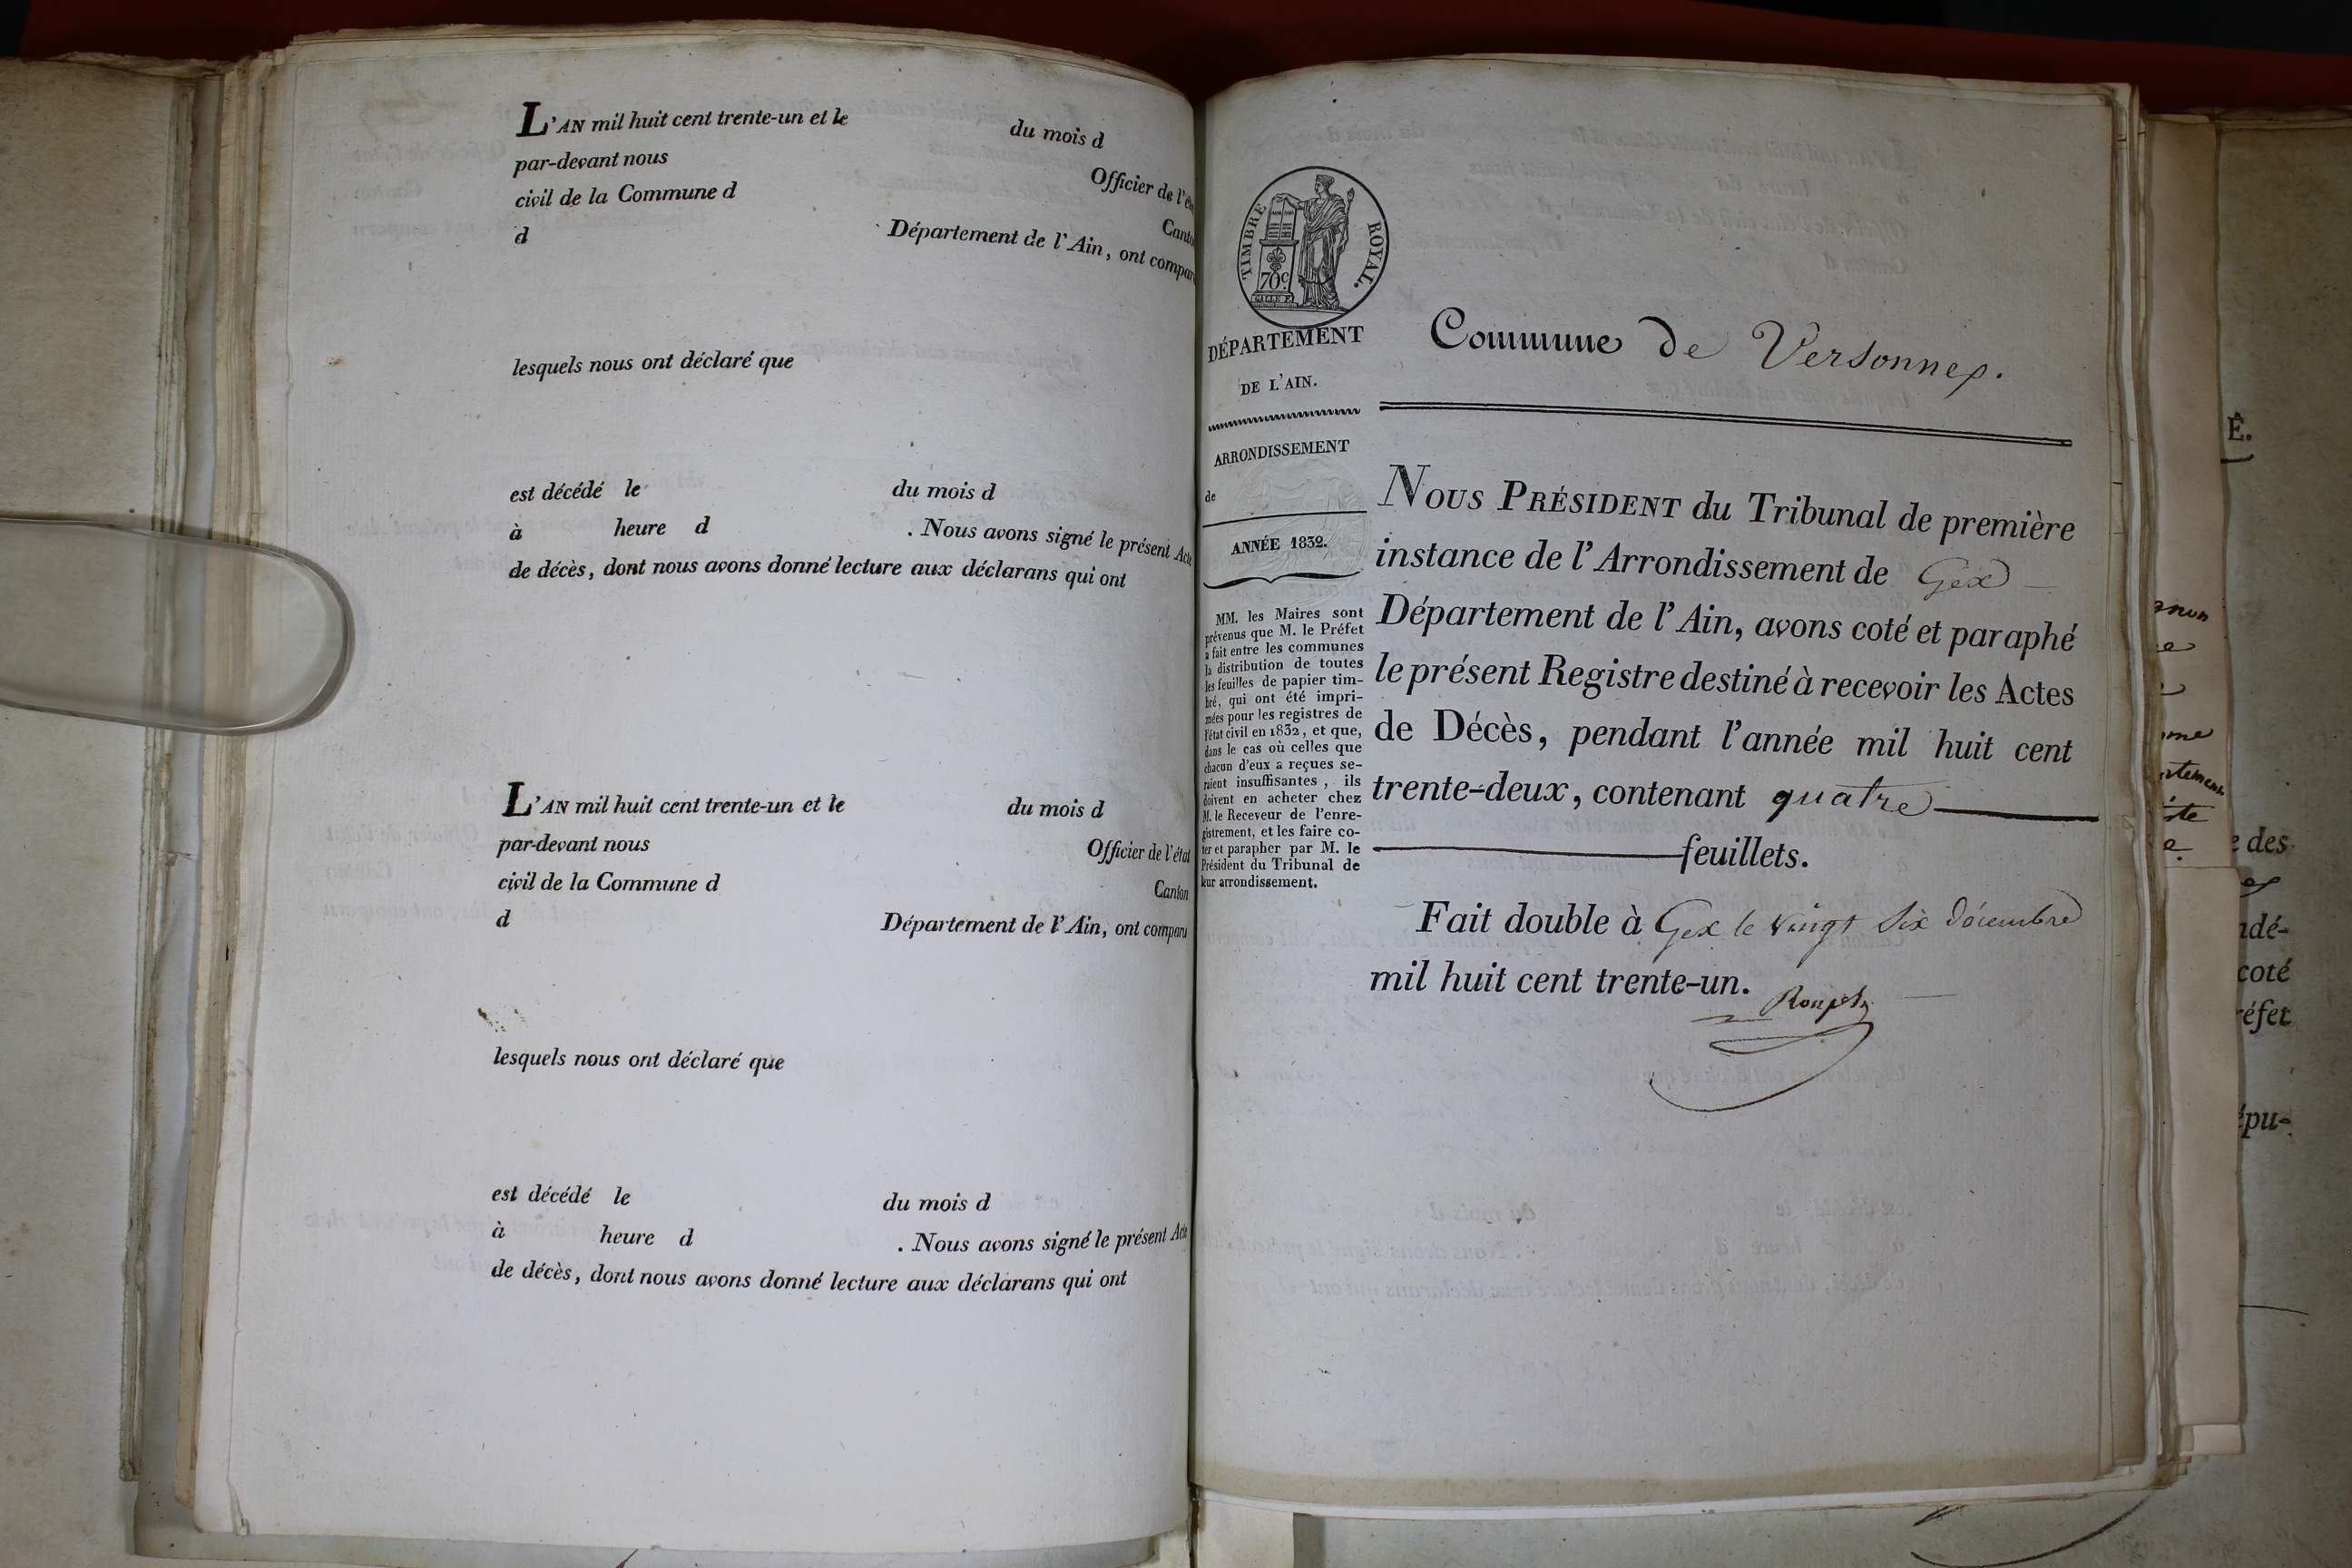 L'AN mil huit cent trente-un et le du mois d
par-devant nous Officier de l'éta
civil de la Commune d Canto
d Département de l'Ain, ont compar
lesquels nous ont déclaré que
est décédé le du mois d
à heure d . Nous avons signé le présent Acte
de décès, dont nous avons donné lecture aux déclarans qui ont
L'AN mil huit cent trente-un et le du mois d
par-devant nous Officier de l'état
civil de la Commune d Canton
d Département de l'Ain, ont comparu
lesquels nous ont déclaré que
est décédé le du mois d
à heure d . Nous avons signé le présent Acte
de décès, dont nous avons donné lecture aux déclarans qui ont
TIMBRE ROYAL.
70c.
DÉPARTEMENT
DE L'AIN.
ARRONDISSEMENT
de
ANNÉE 1832.
MM. les Maires sont
prévenus que M. le Préfet
a fait entre les communes
la distribution de toutes
les feuilles de papier tim-
bré, qui ont été impri-
mées pour les registres de
l'état civil en 1832, et que,
dans le cas où celles que
chacun d'eux a reçues se-
raient insuffisantes, ils
doivent en acheter chez
M. le Receveur de l'enre-
gistrement, et les faire co-
ter et parapher par M. le
Président du Tribunal de
leur arrondissement.
Commune de Versonnex.
NOUS PRÉSIDENT du Tribunal de première
instance de l'Arrondissement de Gex
Département de l'Ain, avons coté et paraphé
le présent Registre destiné à recevoir les Actes
de Décès, pendant l'année mil huit cent
trente-deux, contenant quatre
feuillets.
Fait double à Gex le vingt six décembre
mil huit cent trente-un.
É.
e des
ndé-
coté
réfet
épu-